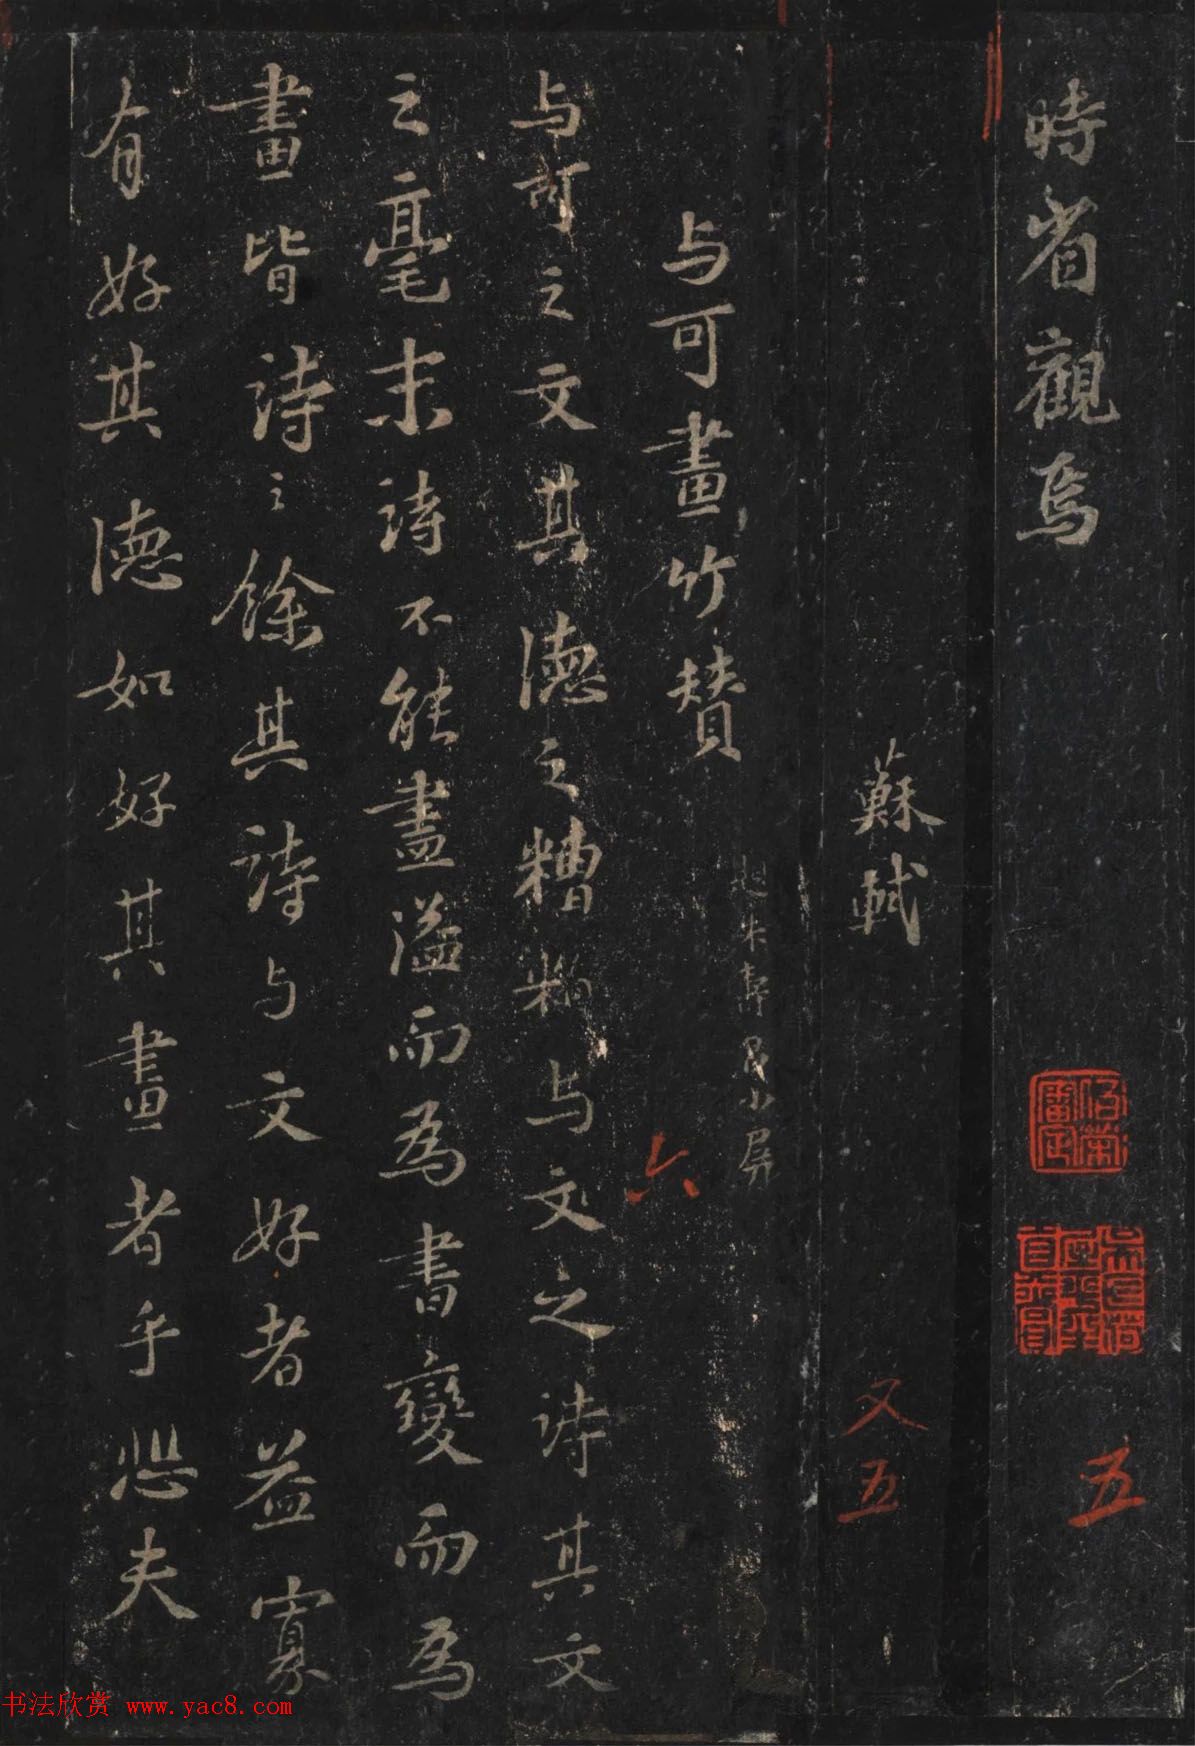 時省觀焉
蘇軾
与可畫竹賛
与可之文其德之糟粕与文之詩其文
之毫末詩不能盡溢而為書變而為
畫皆詩之餘其詩与文好者益寡
有好其德如好其畫者乎悲夫
五
又五
六
书法欣赏 www.yac8.com